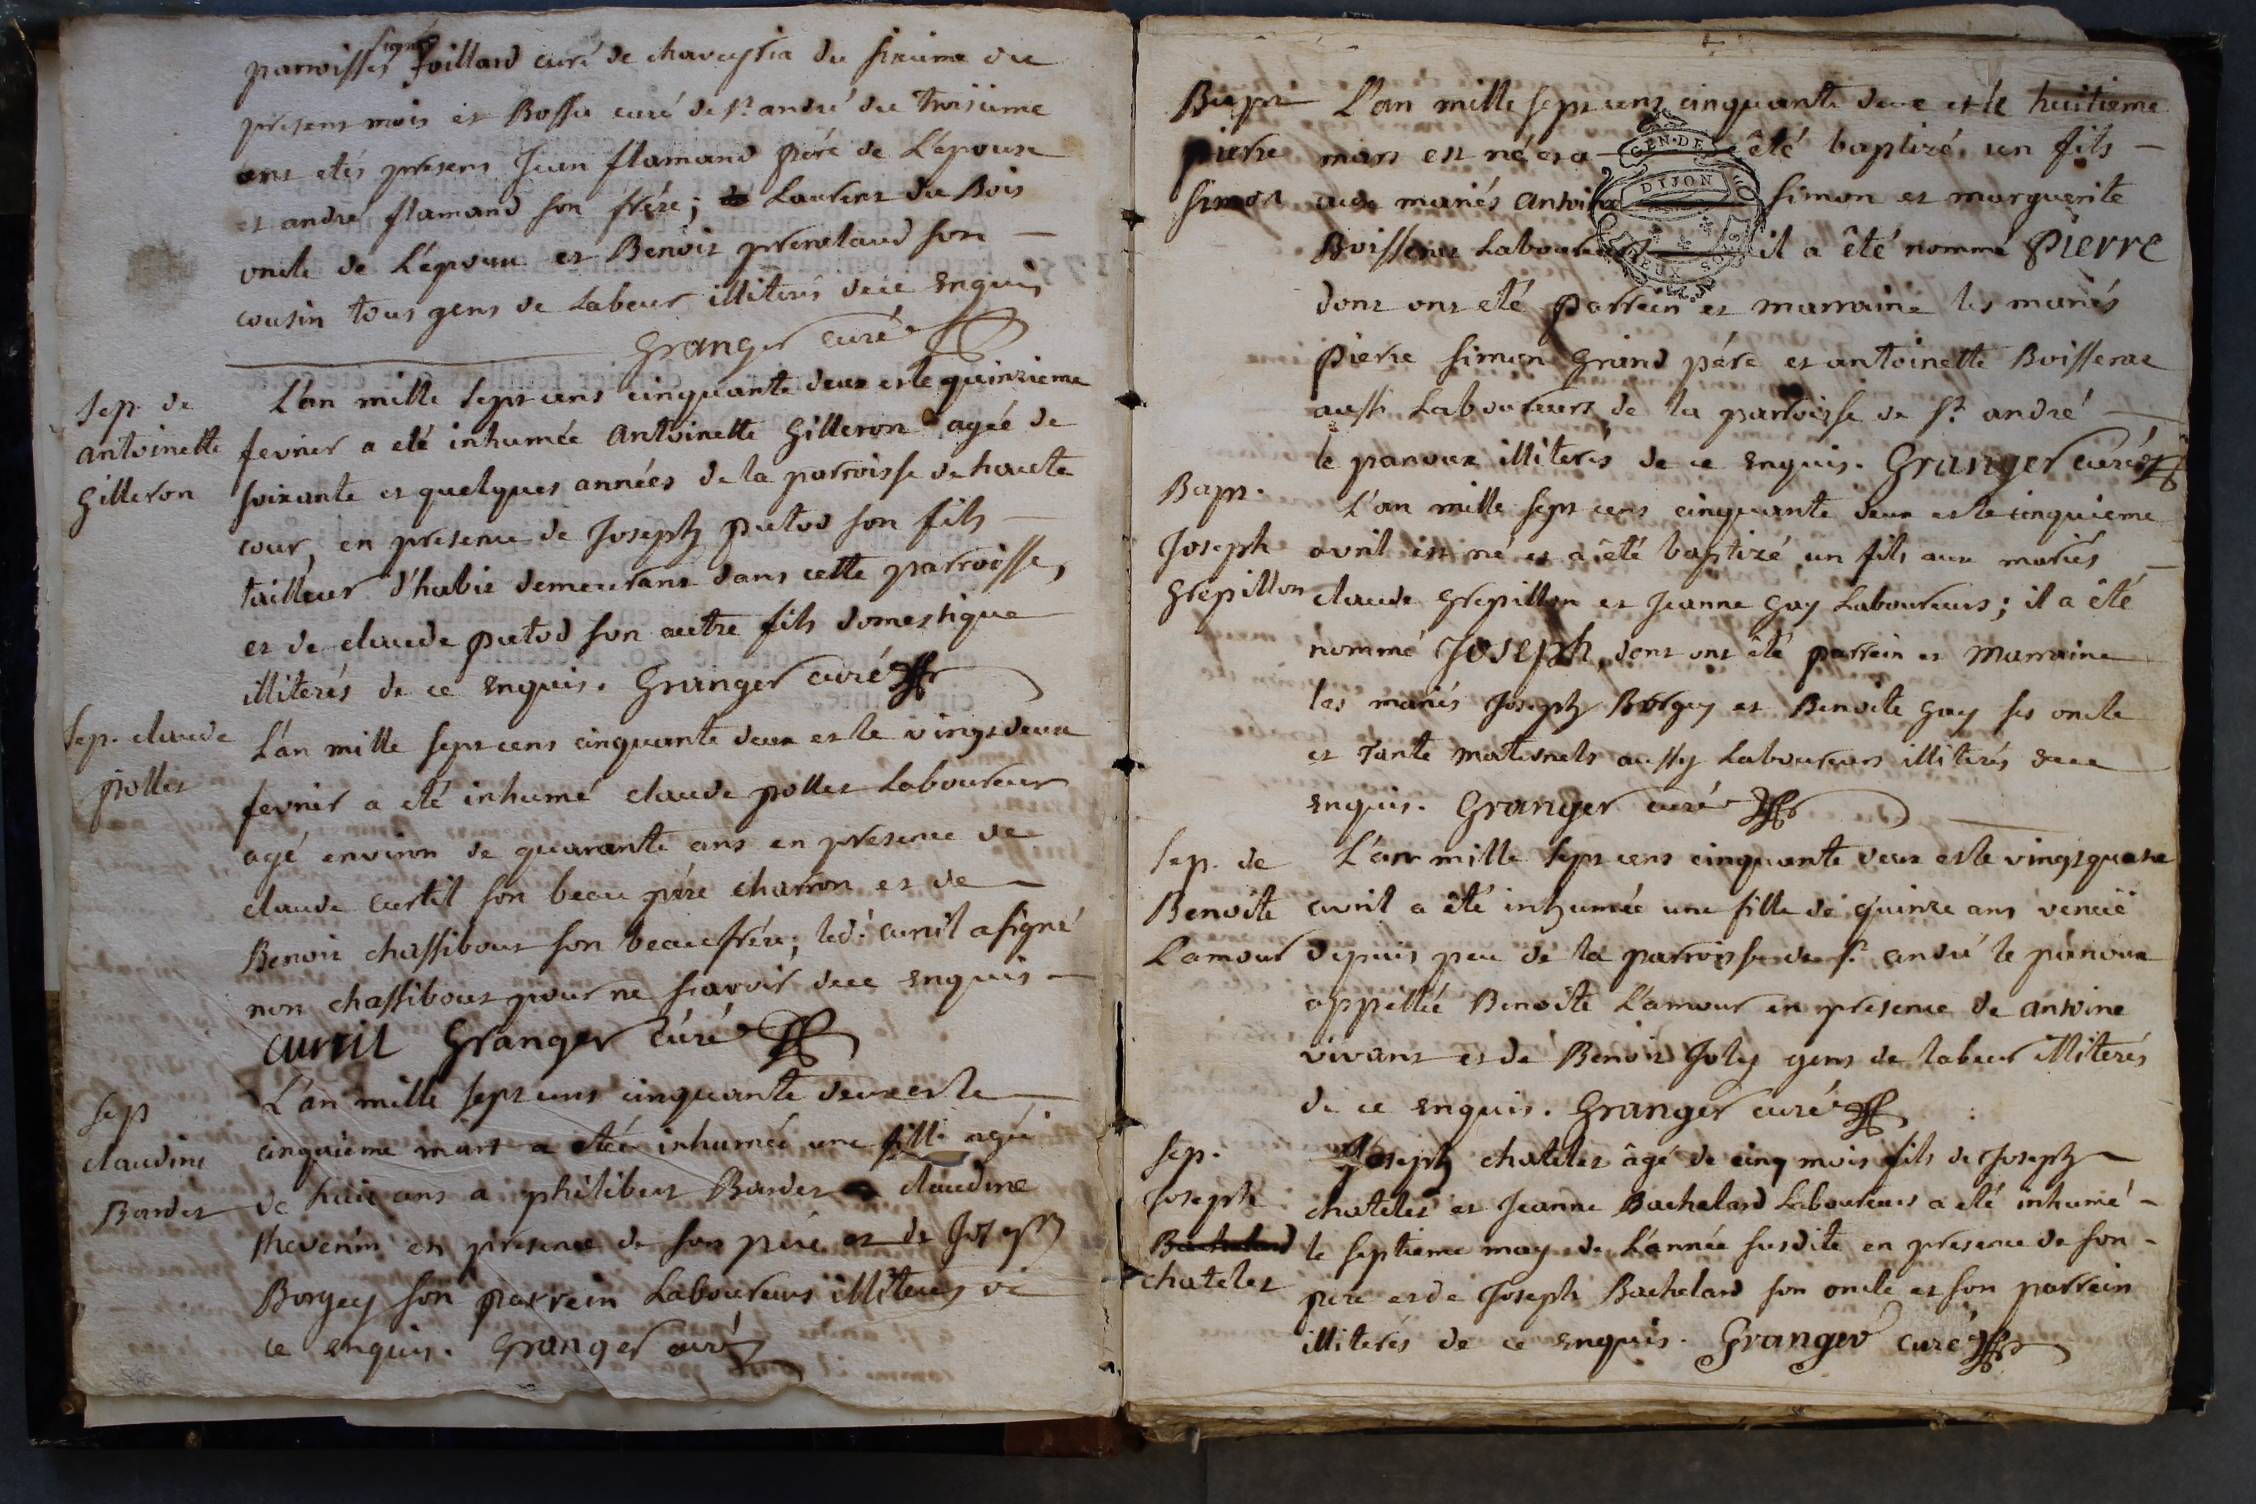 parroisses signé Joillard curé de chaveyria du sixieme du
present mois et Bossu curé de st. andré du troisieme
ont etés presens Jean flamand pére de L'epouse
et andré flamand son frére; Laurent du Bois
oncle de L'epoux et Benoit prenetaud son
cousin tous gens de Labeur illiterés dece enquis
Granger curé
Sep. de
antoinette
Gilleron
L'an mille sept cens cinquante deux et le quinzieme
fevrier a eté inhumée Antoinette Gilleron agée de
soixante et quelques années de la parroisse de haute
cour, en presence de Joseph putod son fils
tailleur d'habit demeurant dans cette parroisse,
et de claude putod son autre fils domestique
illiterés de ce enquis. Granger curé
Sep. claude
pollet
L'an mille sept cens cinquante deux et le vingt deux
fevrier a eté inhumé claude pollet Laboureur
agé environ de quarante ans en presence de
claude curtil son beau pére charron et de
Benoit chassibout son beaufrére; led. curtil a signé
non chassibout pour ne scavoir dece enquis
curtil Granger curé
Sep
claudine
Bardet
L'an mille sept cens cinquante deux et le
cinquieme mars a eteé inhumée une fille agée
de huit ans a philibert Bardet claudine
thevenin en presence de son pére et de Joseph
Borgey son parrein Laboureurs illiterés de
ce enquis. Granger curé
Bapt
pierre
Simon
L'an mille sept cens cinquante deux et le huitieme
mars est né et a été baptizé un fils
aux mariés Antoine Simon et marguerite
Boisserat Laboureurs il a été nommé Pierre
GEN. DE
DIJON
DEUX SOLS
dont ont eté parrein et marraine les mariés
Pierre Simon Grand pére et antoinette Boisserat
aussi Laboureurs de la parroisse de st. andré
le panoux illiterés de ce enquis. Granger curé
Bapt.
Joseph
Grepillon
L'an mille sept cens cinquante deux et le cinquieme
avril est né et a été baptizé un fils aux mariés
claude Grepillon et Jeanne Gay Laboureurs; il a été
nommé Joseph, dont ont été parrein et Marraine
les mariés Joseph Borgey et Benoite Gay ses oncle
et Tante Maternels aussy Laboureurs illiterés dece
enquis. Granger curé
Sep. de
Benoite
L'amour
L'an mille sept cens cinquante deux et le vingt quatre
avril a été inhumée une fille de quinze ans venuë
depuis peu de la parroisse de st. andré le panoux
appellée Benoite L'amour en presence de antoine
vivant et de Benoit Joly gens de labeur illiterés
de ce enquis. Granger curé
Sep.
Joseph
Bachelard
chatelet
Joseph chatelet âgé de cinq mois fils de Joseph
chatelet et Jeanne Bachelard Laboureurs a eté inhumé
le septieme may de L'année susdite en presence de son
pere et de Joseph Bachelard son oncle et son parrein
illiterés de ce enquis. Granger curé